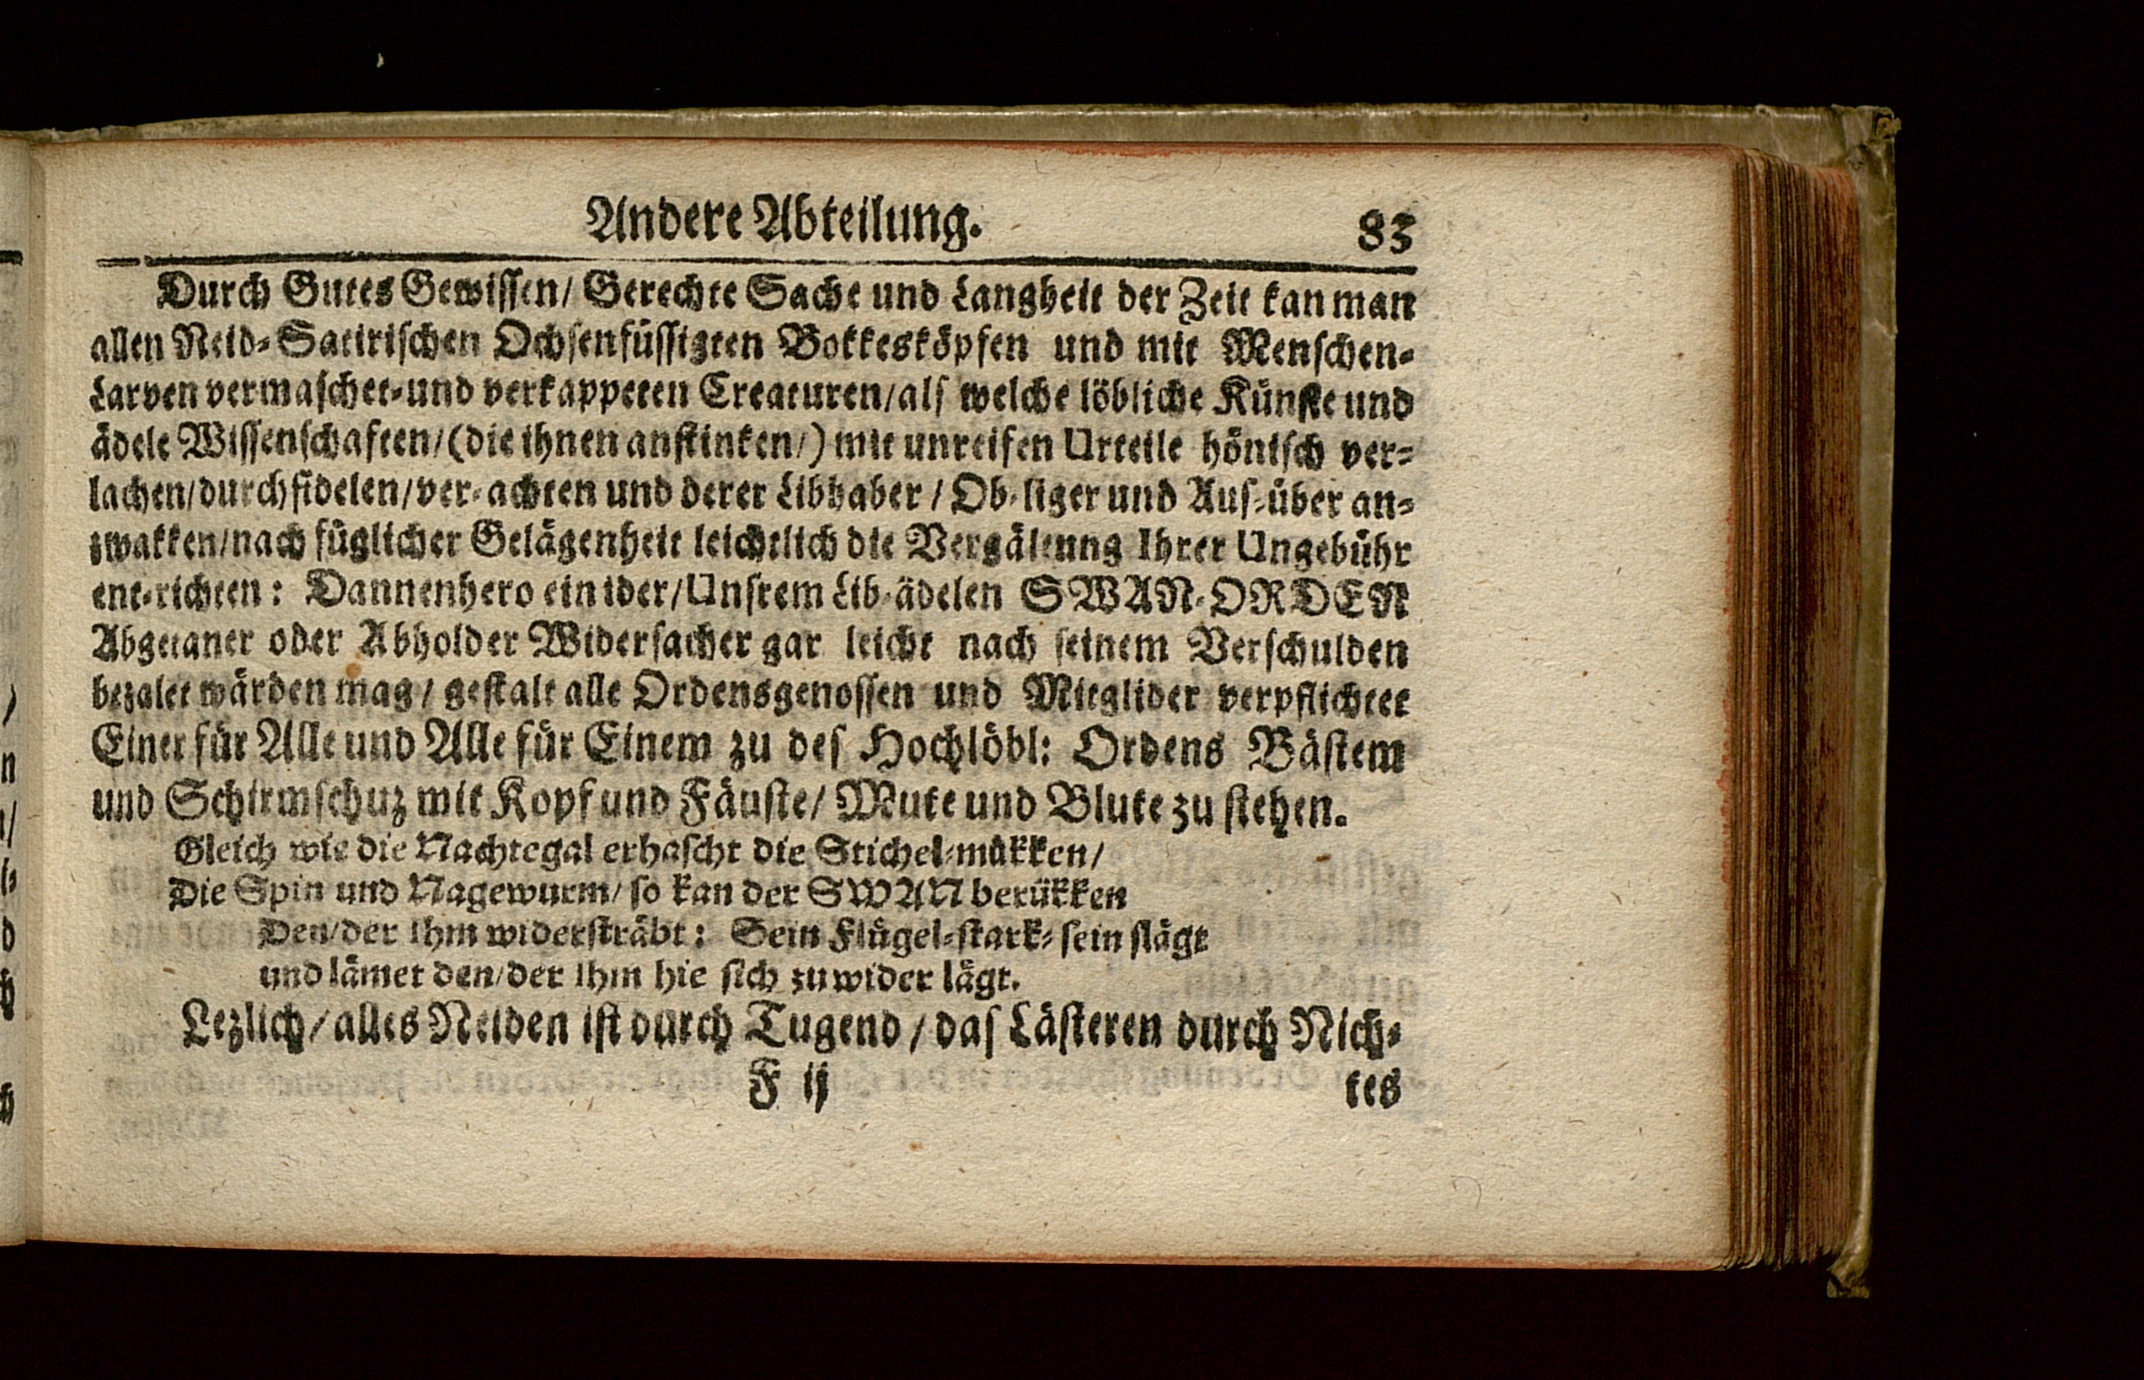 Andere Abteilung. 83
Durch Gutes Gewissen/ Gerechte Sache und Langheit der Zeit kan man
allen Neid-Satirischen Ochsenfüssigten Bokkesköpfen und mit Menschen-
Larven vermaschet-und verkappeten Creaturen/als welche löbliche Künste und
ädele Wissenschaften/(die ihnen anstinken/) mit unreifen Urteile hönisch ver-
lachen/durchfidelen/ver-achten und derer Libhaber / Ob-liger und Aus-über an-
zwakken/nach füglicher Gelägenheit leichtlich die Vergältung Ihrer Ungebühr
ent-richten: Dannenhero ein ider/Unsrem Lib-ädelen SWAN-ORDEN
Abgetaner oder Abholder Widersacher gar leicht nach seinem Verschulden
bezalet wärden mag / gestalt alle Ordensgenossen und Mitglider verpflichtet
Einer für Alle und Alle für Einem zu des Hochlöbl: Ordens Bästem
und Schirmschuz mit Kopf und Fäuste/ Mute und Blute zu stehen.
Gleich wie die Nachtegal erhascht die Stichel-mükken/
Die Spin und Nagewurm/ so kan der SWAN berükken
Den/der Ihm widersträbt: Sein Flügel-stark-sein slägt
und lämet den/der Ihm hie sich zuwider lägt.
Lezlich/alles Neiden ist durch Tugend / das Lästeren durch Nich-
F ij tes